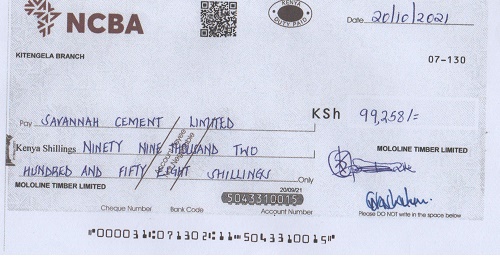 NCBA
KENYA
DUTY PAID
Date 20/10/2021
KITENGELA BRANCH
07-130
Pay SAVANNAH CEMENT LIMITED
KSh 99,258/=
Kenya Shillings NINETY NINE THOUSAND TWO
MOLOLINE TIMBER LIMITED
HUNDRED AND FIFTY EIGHT SHILLINGS Only
MOLOLINE TIMBER LIMITED
20/09/21
5043310015
Cheque Number Bank Code Account Number
Please DO NOT write in the space below
"000031:07130211:5043310015"